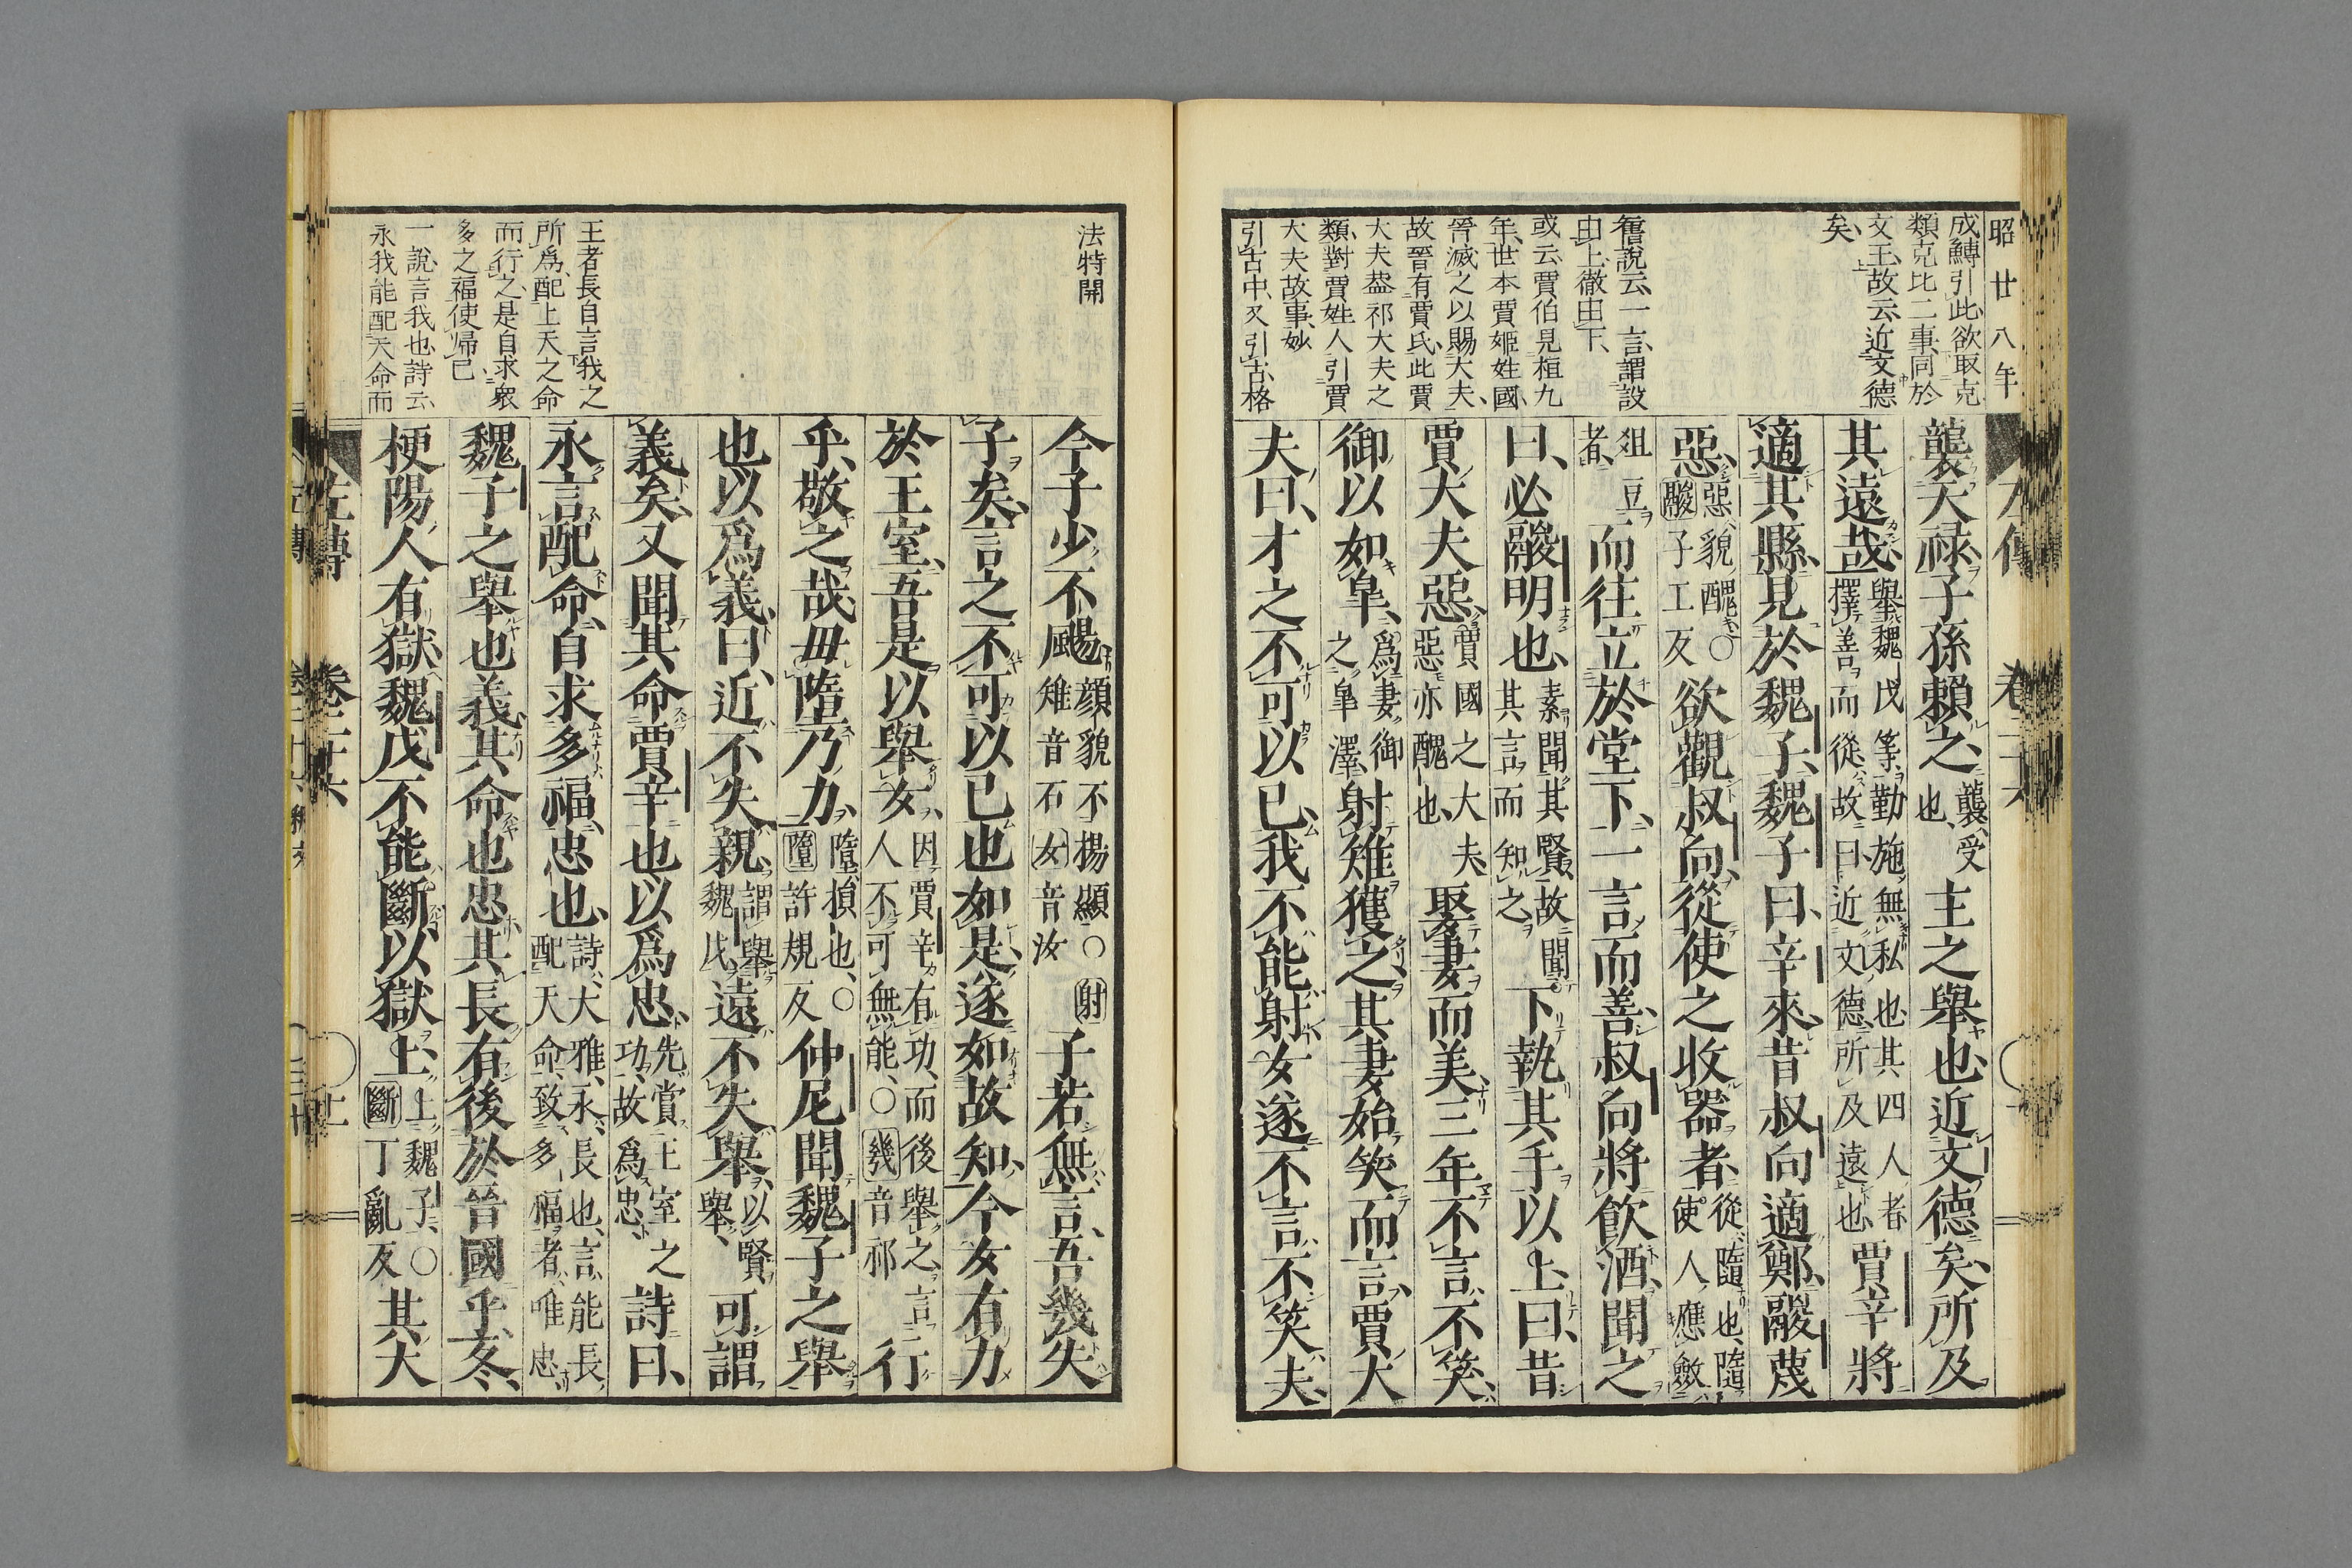 昭廿八年
成鱄引此欲取克
類克比二事同於
文王故云近文德
矣
舊說云一言謂設
由上徹由下
或云賈伯見桓九
年世本賈姬姓國
晉滅之以賜大夫
故晉有賈氏此賈
大夫葢祁大夫之
類對賈姓人引賈
大夫故事妙
引古中又引古格
襲天祿子孫賴之襲受也主之舉也近文德矣所及
其遠哉舉魏戊等勤施無私也其四人者擇善而從故曰近文德所及遠也賈辛將
適其縣見於魏子魏子曰辛來昔叔向適鄭鬷蔑
惡惡貌醜○鬷子工反欲觀叔向從使之收器者從隨也隨使人應斂
俎豆者而往立於堂下一言而善叔向將飲酒聞之
曰必鬷明也素聞其賢故聞其言而知之下執其手以上曰昔
賈大夫惡賈國之大夫惡亦醜也娶妻而美三年不言不笑
御以如皐爲妻御之皐澤射雉獲之其妻始笑而言賈大
夫曰才之不可以已我不能射女遂不言不笑夫
法特開
王者長自言我之
所爲配上天之命
而行之是自求衆
多之福使歸已
一說言我也詩云
永我能配天命而
今子少不颺顏貌不揚顯○颺音揚射雉音石女音汝子若無言吾幾失
子矣言之不可以已也如是遂如故知今女有力
於王室吾是以舉女因賈辛有功而後舉之言人不可無能○幾音祁行
乎敬之哉毋墮乃力墮損也○墮許規反仲尼聞魏子之舉
也以爲義曰近不失親謂舉魏戊遠不失舉以賢舉可謂
義矣又聞其命賈辛也以爲忠先賞王室之功故爲忠詩曰
永言配命自求多福忠也詩大雅永長也言能長配天命致多福者唯忠
魏子之舉也義其命也忠其長有後於晉國乎冬
梗陽人有獄魏戊不能斷以獄上上魏子○斷丁亂反其大
左傳
卷二十六